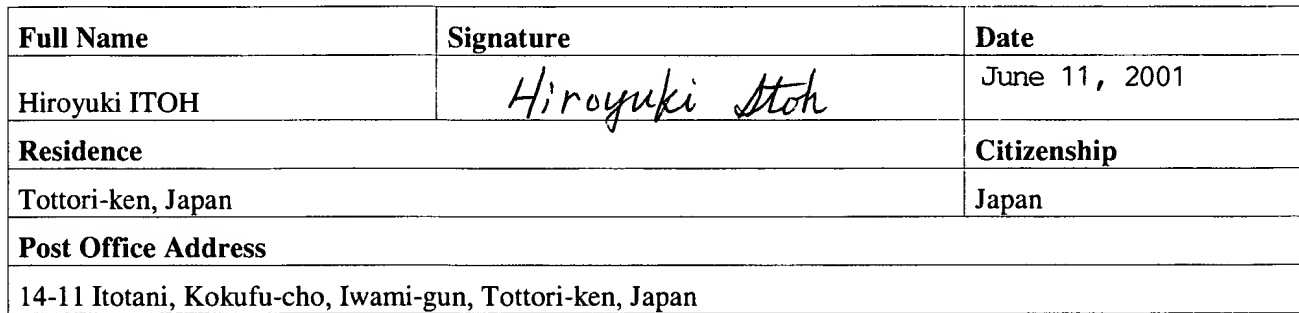 Full Name Signature Date
Hiroyuki ITOH Hiroyuki Itoh June 11, 2001
Residence Citizenship
Tottori-ken, Japan Japan
Post Office Address
14-11 Itotani, Kokufu-cho, Iwami-gun, Tottori-ken, Japan